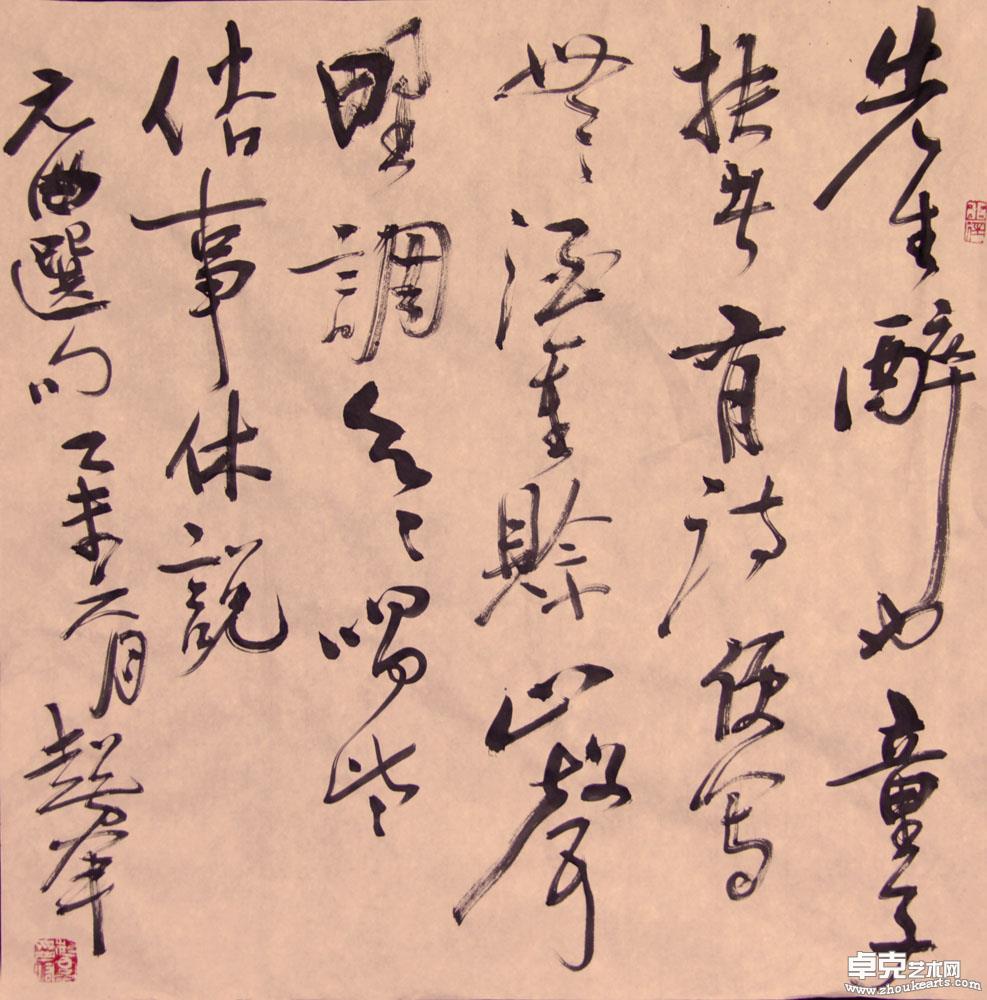 先生醉也童子
扶着有詩便寫
無酒重賒山聲
野調欲唱些
俗事休說
元曲選句乙未月
卓克艺术网
www.zhoukearts.com